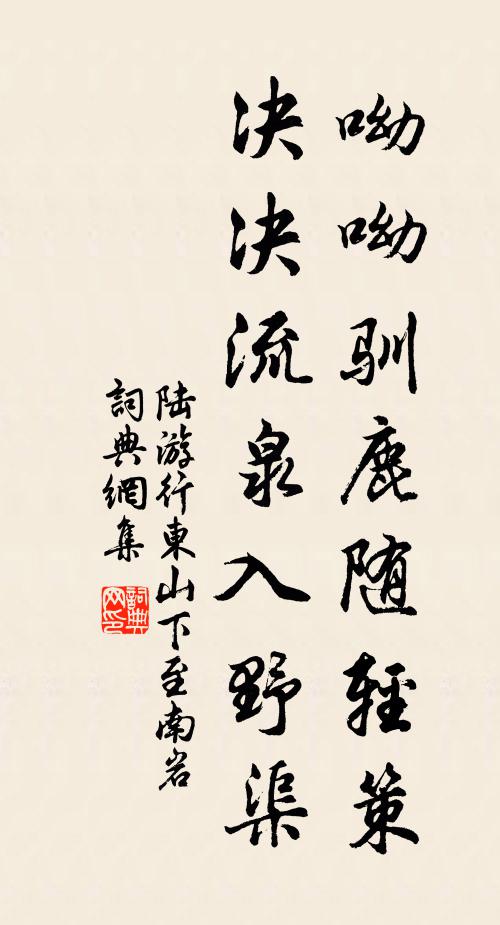 呦呦驯鹿随輕策
决决流泉入野渠
陆游行東山下至南岩
詞典網集
詞典网印